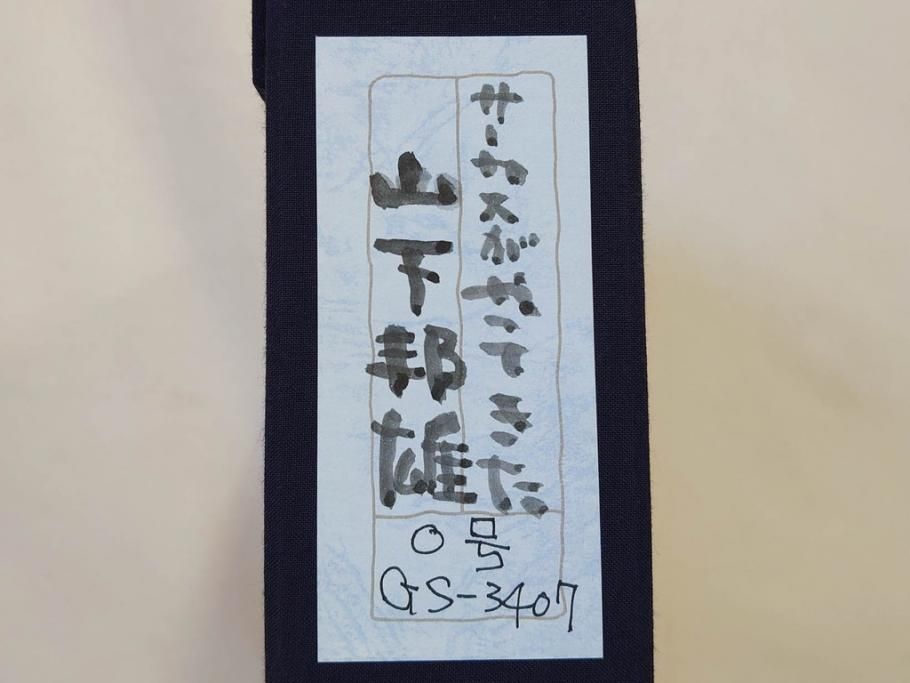 サーカスがやってきた
山下邦雄
0号
GS-3407